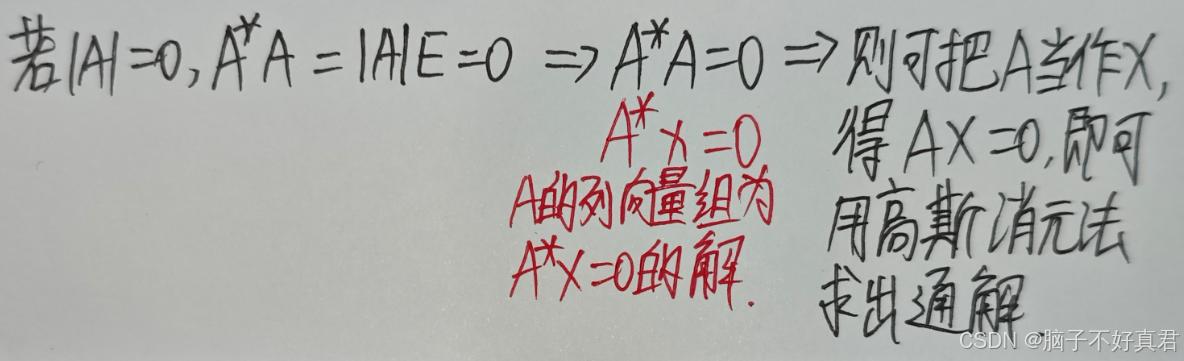 若|A|=0, A*A=|A|E=0 ⇒ A*A=0 ⇒ 则可把A当作X,
得AX=0,即可
用高斯消元法
求出通解.
A*x=0
A的列向量组为
A*X=0的解.
CSDN @脑子不好真君